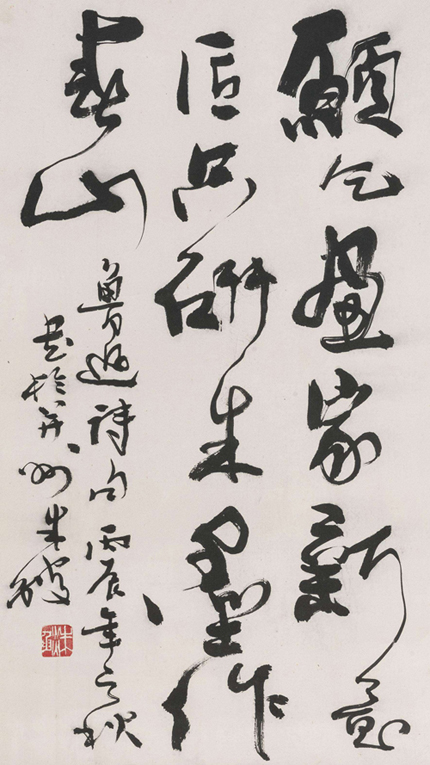 願乞畫家新意
匠只研朱墨作
春山
魯迅詩句丙辰年之秋
書於并州朱焰